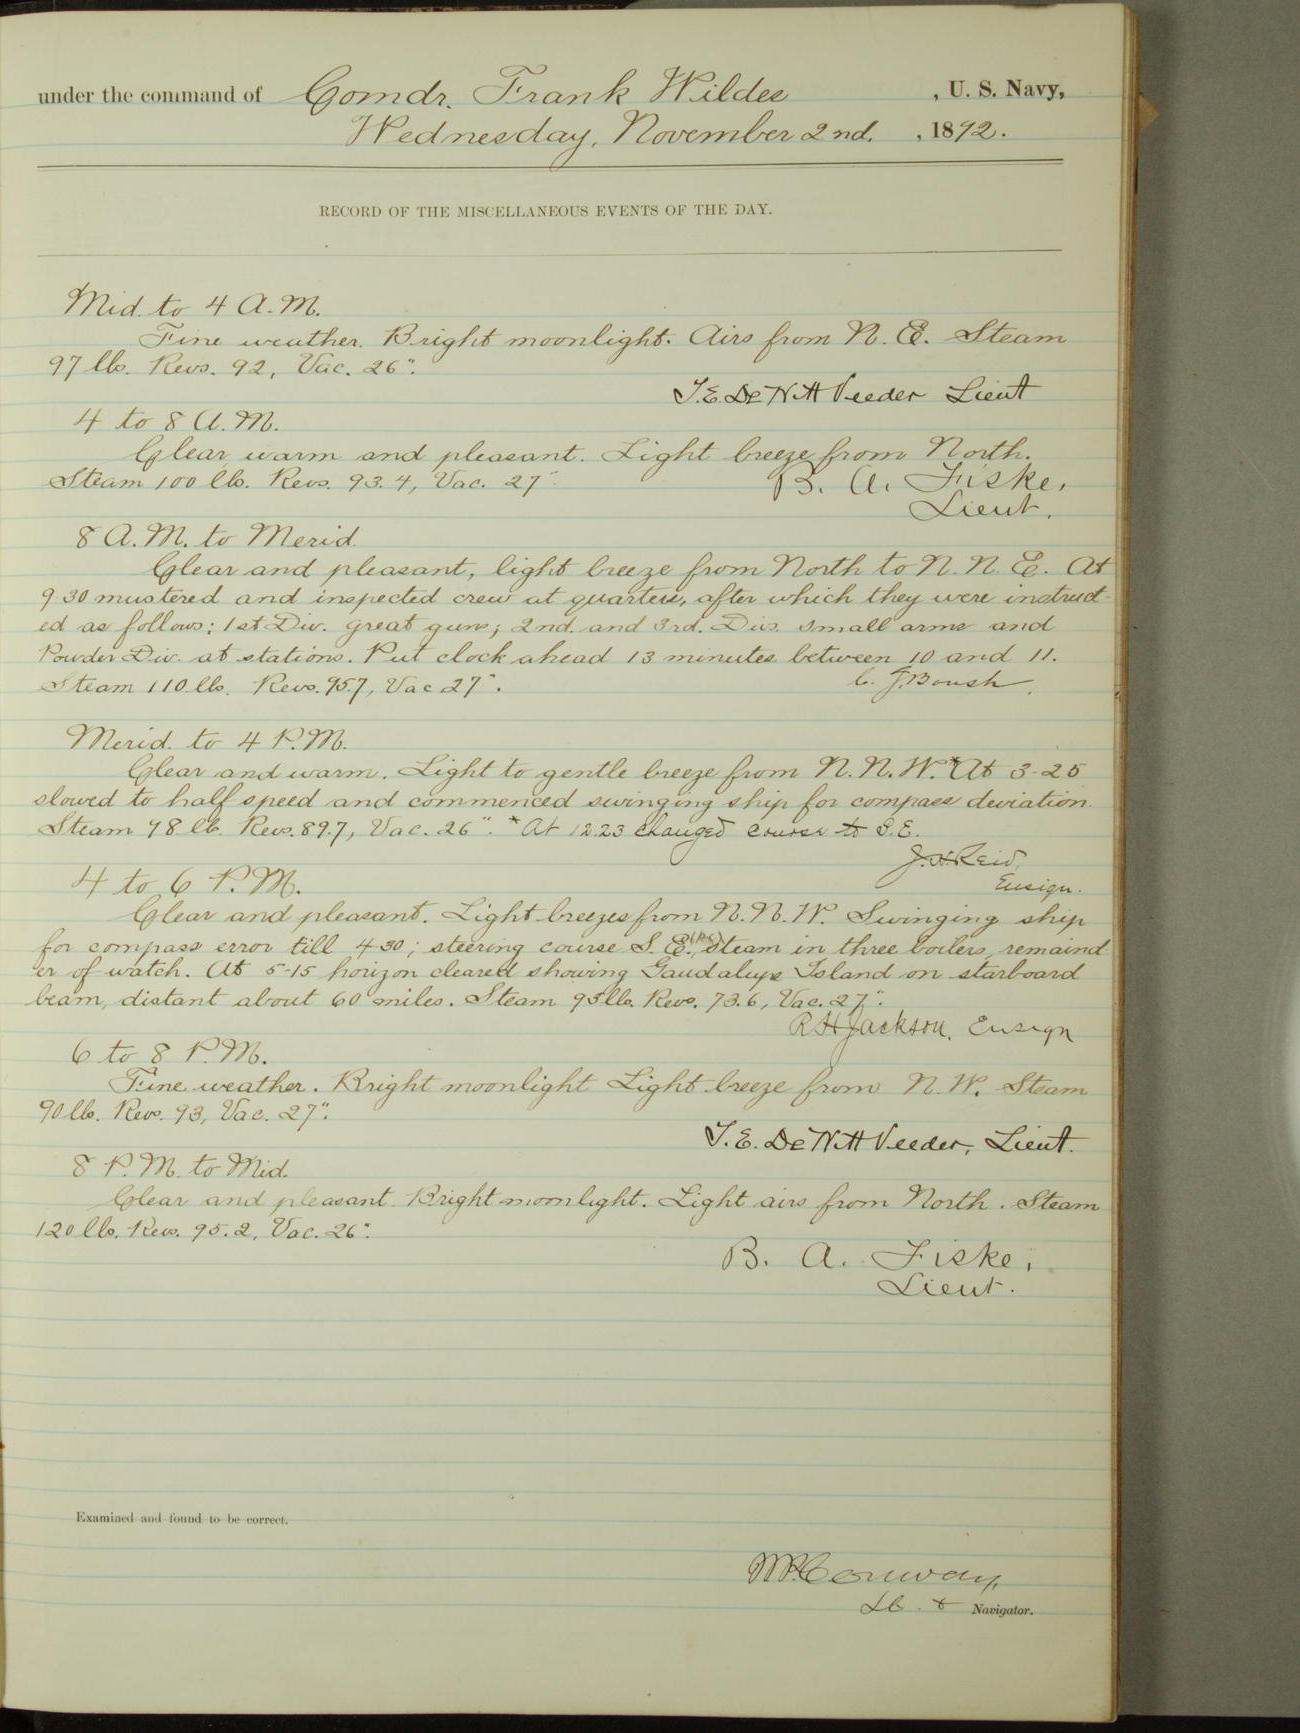 under the command of Comdr. Frank Wildes , U. S. Navy,
Wednesday, November 2nd. , 1892.
RECORD OF THE MISCELLANEOUS EVENTS OF THE DAY.
Mid. to 4 A.M.
Fine weather. Bright moonlight. Airs from N. E. Steam
97 lbs. Revs. 92, Vac. 26".
T.E. DeWitt Veeder Lieut
4 to 8 A.M.
Clear, warm and pleasant. Light breeze from North.
Steam 100 lb. Revs. 93.4, Vac. 27"
B. A. Fiske,
Lieut.
8 A.M. to Merid.
Clear and pleasant, light breeze from North to N. N. E. At
9 30 mustered and inspected crew at quarters, after which they were instruct-
ed as follows: 1st Div. great guns; 2nd. and 3rd. Divs. small arms and
Powder Div. at stations. Put clock ahead 13 minutes between 10 and 11.
Steam 110 lb. Revs. 95.7, Vac 27".
C. J. Boush
Merid. to 4 P.M.
Clear and warm. Light to gentle breeze from N. N. W. * At 3-25
slowed to half speed and commenced swinging ship for compass deviation.
Steam 98 lb. Revs. 89.7, Vac. 26". * At 12.23 changed course to S.E.
J.H. Reid,
Ensign.
4 to 6 P.M.
Clear and pleasant. Light breezes from N. N. W. Swinging ship
for compass error till 4 30; steering course S. E. (p.c.) steam in three boilers, remaind
er of watch. At 5-15 horizon cleared showing Gaudalupe Island on starboard
beam, distant about 60 miles. Steam 95 lb. Revs. 73.6, Vac. 27".
R H Jackson, Ensign
6 to 8 P.M.
Fine weather. Bright moonlight Light breeze from N. W. Steam
90 lb. Revs. 93, Vac. 27".
T. E. DeWitt Veeder, Lieut.
8 P.M. to Mid.
Clear and pleasant. Bright moonlight. Light airs from North. Steam
120 lb. Revs. 95.2, Vac. 26".
B. A. Fiske,
Lieut.
Examined and found to be correct.
W.P. Conway,
Navigator.